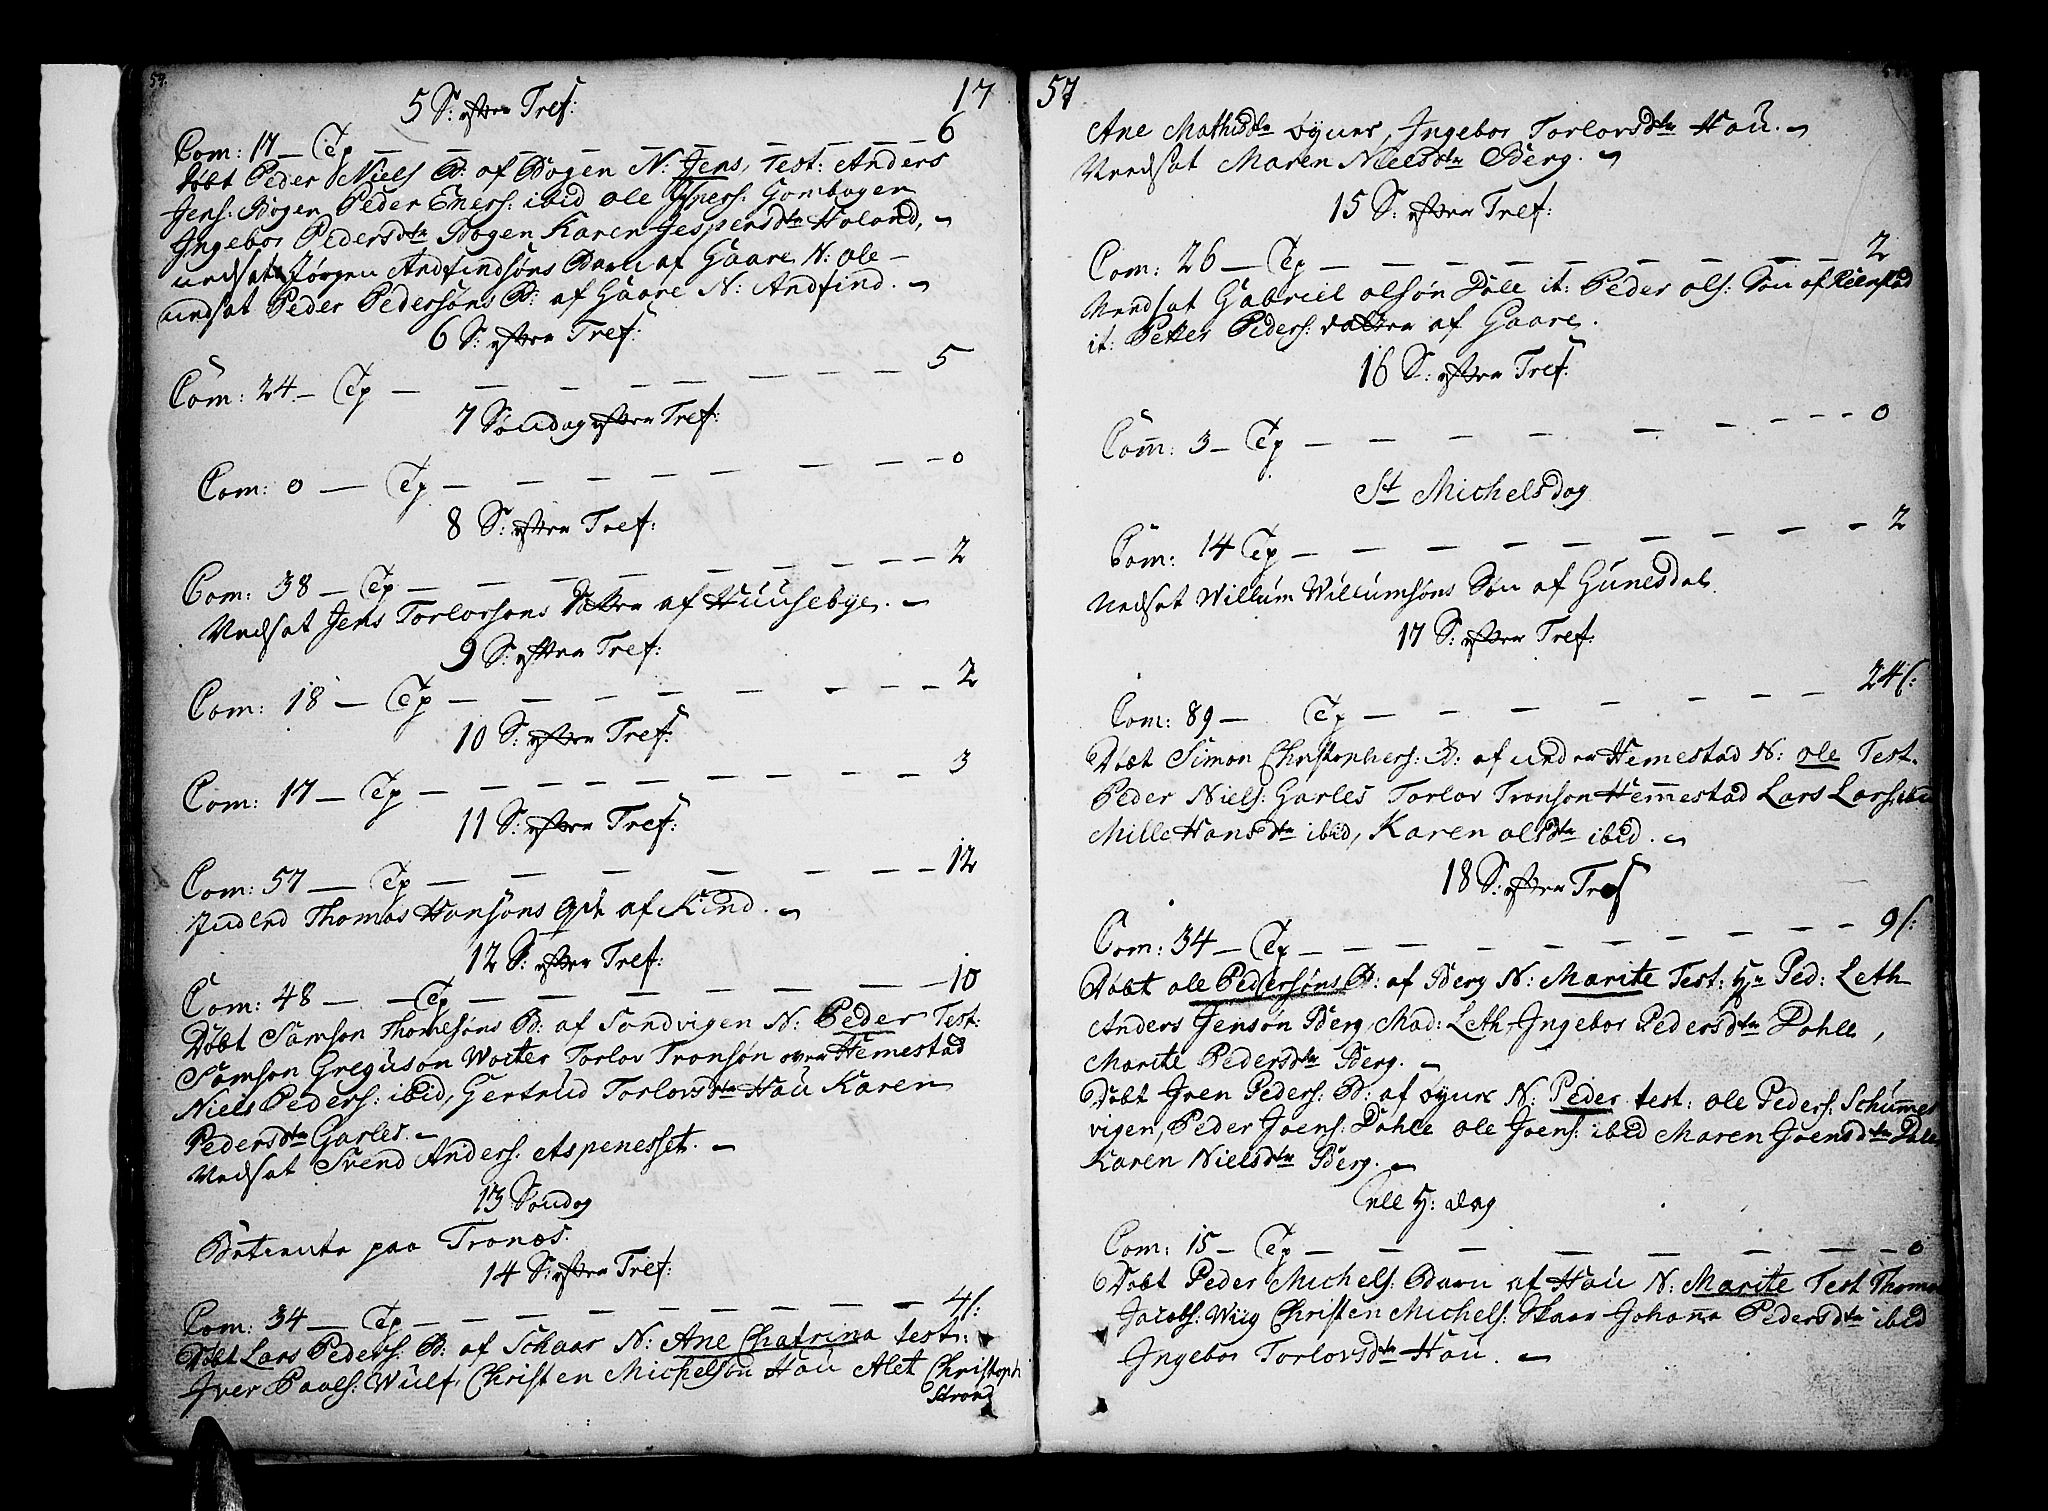 17
5 S: efter Tref:
Com: 17 — Tp — 6
Døbt Peder Niels B: af Bogen N: Jens, Test: Anders
Jens: Bogen Peder Eners: ibid ole Gombogen
Ingebor Pedersdtr Bogen Karen Jespersdtr Holand,
Jørgen Andfindsøns Barn af Gaare N: ole
Peder Pedersøns B: af Gaare N: Andfind.
6 S: efter Tref:
Com: 24 — Tp — 5
7 Søndag efter Tref:
Com: 0 — Tp — 0
8 S: efter Tref:
Com: 38 — Tp — 2
Vedsat Jens Torlorsons Datter af Huusebye.
9 S: efter Tref:
Com: 18 — Tp — 2
10 S: efter Tref:
Com: 17 — Tp — 3
11 S: efter Tref:
Com: 57 — Tp — 12
Thomas Hansøns af Kind.
12 S: efter Tref:
Com: 48 — Tp — 10
Døbt Samson Thomesøns B: af Sandvigen N: Peder Test:
Samson Greguson Wolter Torlov Tronsøn over Hemestad
Niels Peders: ibid, Gertrud Torlovsdtr Hau Karen
Pedersdtr Garles.
Vedsat Svend Anders: etspenesset.
13 Søndag
Betiente paa Tronæs.
14 S: efter Tref:
Com: 34 — Tp — 4 s:
Døbt Lars Peders: B: af Schaar N: Ane Chatrina test:
Iver Pauls: Wulf, Christen Michelsøn Hau Alet Christoph
Strand
57
Ane Mathisdtr øynes, Ingebor Torlovsdtr Hau.
Vedsat Maren Nielsdtr Berg.
15 S: efter Tref:
Com: 26 — Tp — 2
Vedsat Gabriel olsøn Dale it: Peder ols: Søn af
it: Petter Peders: datter af Gaare.
16 S: efter Tref:
Com: 3 — Tp — 0
St Michelsdag
Com: 14 Tp — 2
Vedsat Willum Willumsøns Søn af Gunesdal.
17 S: efter Tref:
Com: 89 — Tp — 24 s:
Døbt Simon Christophers: B: af under Hemestad N: ole Test.
Peder Niels: Garles Torlov Tronson Hemestad Lars Lars: ibid
Mille Hansdtr ibid, Karen olsdtr ibid.
18 S: efter Tref
Com: 34 — Tp — 9 s:
Døbt ole Pedersøns B: af Berg N: Marite Test: Hr Ped: Leth
Anders Jensøn Berg, Mad: Leth Ingebor Pedersdtr Dohle,
Marite Pedersdtr Berg.
Døbt Iven Peders: B: af øynes N: Peder test: ole Peders: Schumes
vigen, Peder Joens: Dohle ole Joens: ibid Maren Joensdtr Dale
Karen Nielsdtr Berg.
elle H: Dag
Com: 15 — Tp — 0
Døbt Peder Michels: Barn af Hau N: Marite Test Thomas
Jacobs: Wiig Christen Michels: Skaar Johanna Pedersdtr ibid
Ingebor Torlovsdtr Hau.